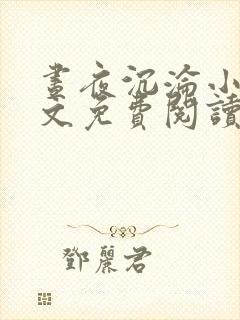 晝夜沉淪小
文免費閱讀
鄧麗君